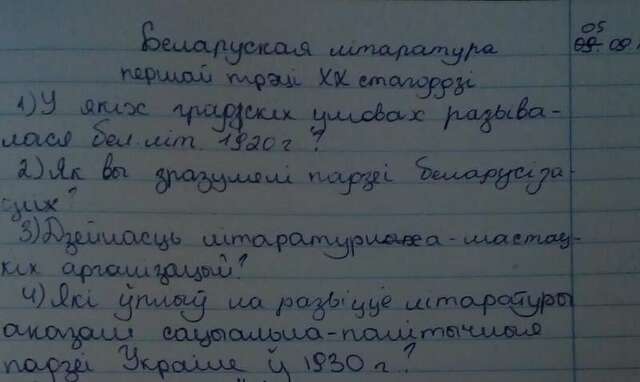 Беларуская літаратура
першай трэці XX стагоддзі
05
09. 09.
1) У якіх градзскіх умовах разыва-
лася бел. літ. 1920 г?
2) Як вы зразумелі парзеі беларусіза-
цих?
3) Дзейнасць літаратурна-мастац-
кіх арганізацый?
4) Які ўплыў на развіццё літаратуры
аказалі сацыяльна-палітычныя
парзеі Украіне ў 1930 г.?